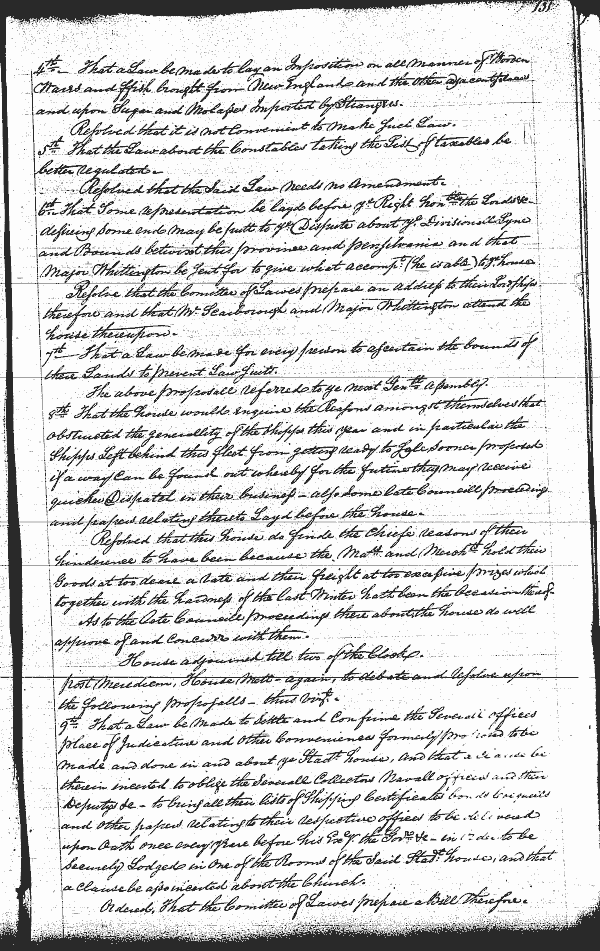 131
4th— That a Law be made to lay an Imposition on all manner of Wooden
Wares and ffish brought from New England and the other adjacent places
and upon Sugar and Molasses Imported by Strangrs.
Resolved that it is not Convenient to make Such Law.
5th That the Law about the Constables taking the List of taxables be
better regulated.—
Resolved that the Said Law needs no Amendment.
6th That Some representation be layd before ye Right Honble the Lords &c
desiring some end may be putt to ye Dispute about ye Divisionall Lyne
and Bounds betwixt this province and pensylvania and that
Major Whittington be Sent for to give what accompt (he is able) to ye house
Resolve that the Comittee of Lawes prepare an address to their Lordships
therefore and that Mr Scarborough and Major Whittington attend the
house thereupon.
7th— That a Law be made for every person to ascertain the bounds of
their Lands to prevent Law Suits.
The above proposall referred to ye next Genll assembly.
8th That the house would enquire the Reasons amongst themselves that
obstructed the generallity of the Shipps this year and in particular the
Shipps Left behind this fleet from getting ready to Sayle sooner proposed
if a way Can be found out whereby for the future they may receive
quicker Dispatch in their business— also some late Councill proceeding
and papers relating thereto Layd before the house.
Resolved that this house do finde the Chiefe reasons of their
hinderence to have been because the Mastr and Merchts hold their
Goods at too deare a Rate and their freight at too excessive prizes which
together with the hardness of the last Winter hath been the Occasion thereof
As to the late Councill proceedings there about the house do well
approve of and Concurr with them.
House adjourned till two of the Clock.
post Meridiem, House Mett again, to debate and resolve upon
the following proposalls— thus vizt.
9th That a Law be Made to Settle and Confirme the Severall offices
place of Judicature and other Conveniences formerly pro to be
made and done in and about ye Stadt house, And that a Clause be
therein incerted to oblige the Severall Collectors Navall officers and their
Deputys &c— to bring all their Lists of Shipping Certificates bonds Cocquetts
and other papers relating to their respective offices to be delivered
upon Oath once every yeare before his Exy the Govr &c— in order to be
Securely Lodged in one of the Rooms of the Said Stadt house, and that
a Clause be also incerted about the Church.
Ordered, That the Comittee of Lawes prepare a Bill Therefore.